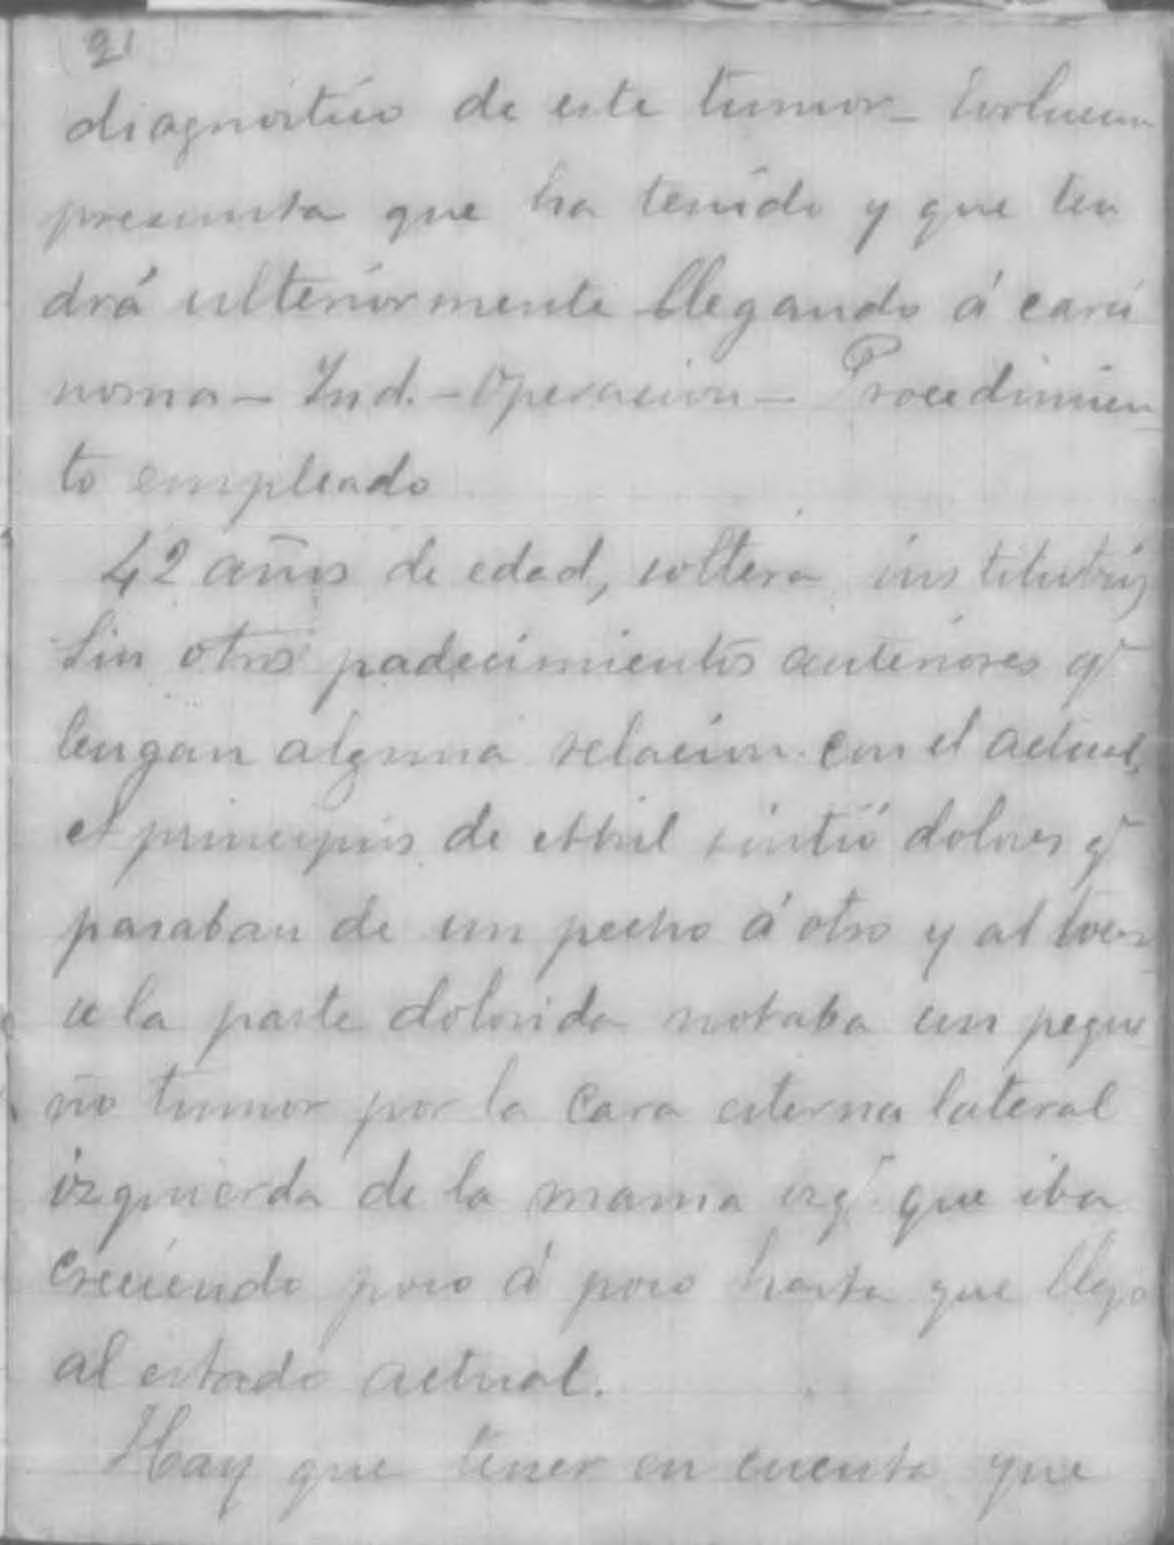 2
diagnostico de este tumor - Evolucion
presunta que ha tenido y que ten
drá ulteriormente llegando á carci
noma - Ind. - Operacion - Procedimien
to empleado
42 años de edad, soltera, institutriz
Sin otros padecimientos anteriores qe
tengan alguna relacion con el actual,
A principios de Abril sintió dolores qe
pasaban de un pecho á otro y al tocar
se la parte dolorida notaba un peque
ño tumor por la cara esterna lateral
izquierda de la mama izqa que iba
creciendo poco á poco hasta que llegó
al estado actual.
Hay que tener en cuenta que